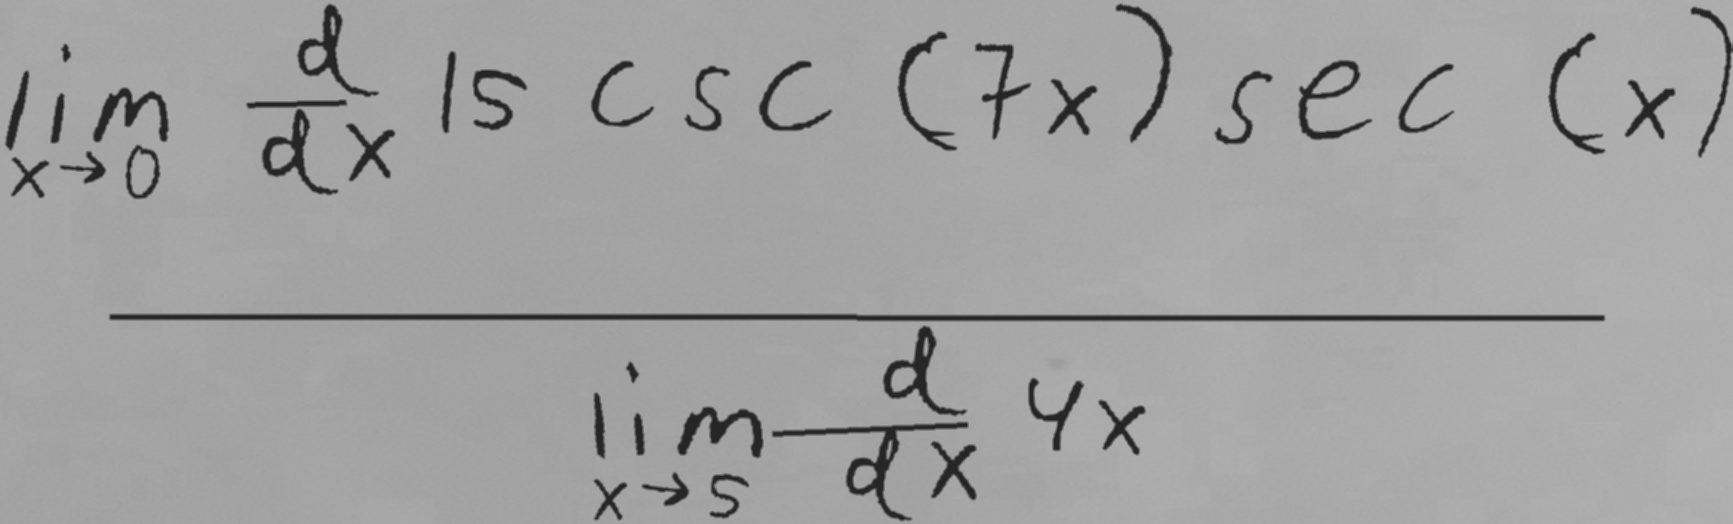 \frac{\lim_{x \to 0} \frac{d}{dx} 15 csc (7x) sec (x)}{\lim_{x \to 5} \frac{d}{dx} 4x}